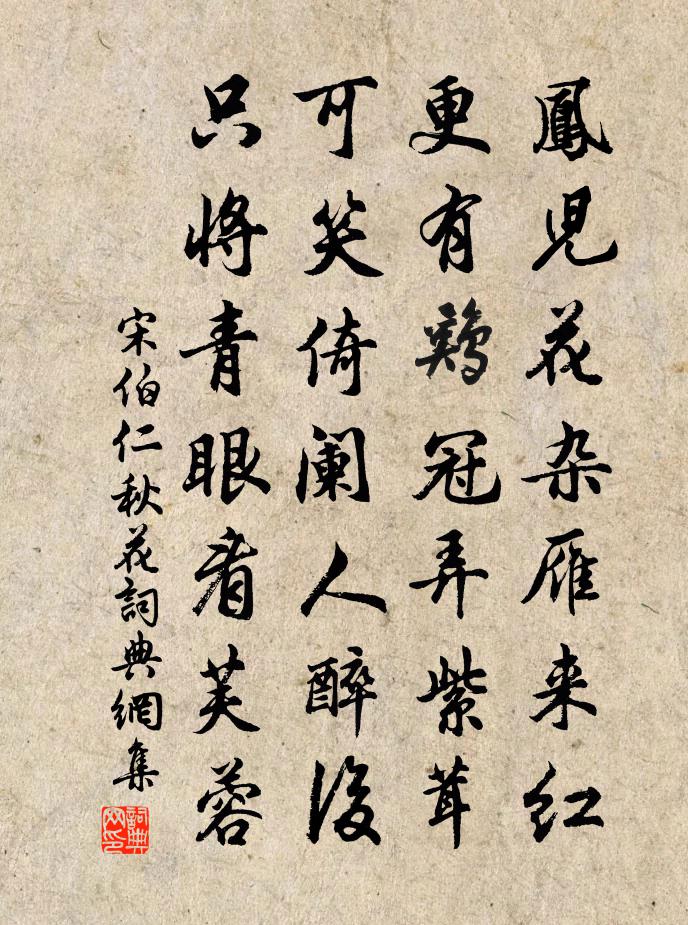 鳳児花杂雁来红
更有鷄冠弄紫茸
可笑倚阑人醉後
只将青眼看芙蓉
宋伯仁秋花詞典網集
詞典网印